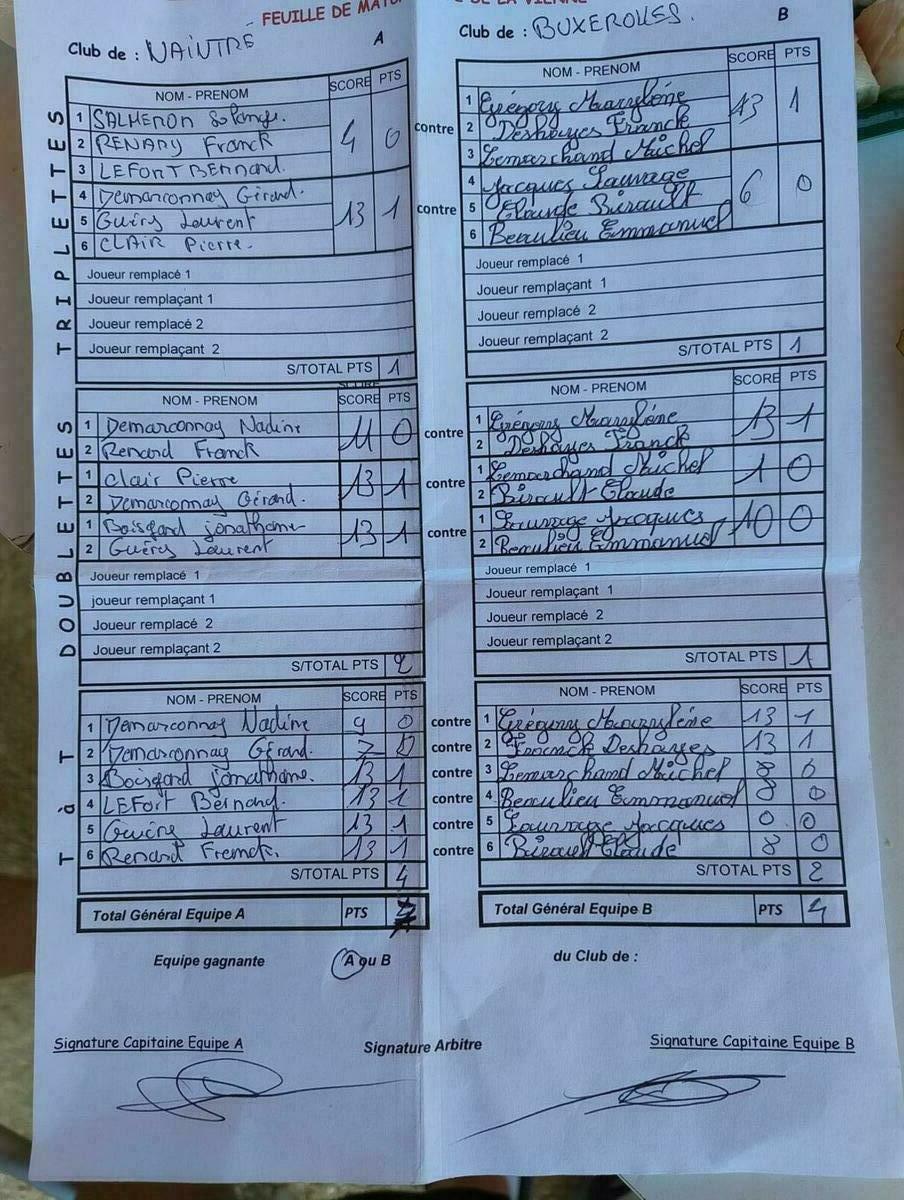 FEUILLE DE DE LA VIENNE
Club de : NAINTRÉ A
Club de : BUXEROLLES. B
TRIPLETTES
NOM - PRENOM SCORE PTS
1 SALMERON Solange. 4 0
2 RENARD Franck
3 LEFORT BERNARD.
4 Demarconnay Gérard. 13 1
5 Guéry Laurent
6 CLAIR Pierre.
Joueur remplacé 1
Joueur remplaçant 1
Joueur remplacé 2
Joueur remplaçant 2
S/TOTAL PTS 1
contre
contre
NOM - PRENOM SCORE PTS
1 Grégory Marylène 13 1
2 Deshayes Franck
3 Lemarchand Michel
4 Jacques Sauvage 6 0
5 Claude Birault
6 Beaulieu Emmanuel
Joueur remplacé 1
Joueur remplaçant 1
Joueur remplacé 2
Joueur remplaçant 2
S/TOTAL PTS 1
DOUBLETTES
NOM - PRENOM SCORE PTS
1 Demarconnay Nadine 11 0
2 Renard Franck
1 Clair Pierre 13 1
2 Demarconnay Gérard.
1 Boisgard jonathane 13 1
2 Guéry Laurent
Joueur remplacé 1
joueur remplaçant 1
Joueur remplacé 2
Joueur remplaçant 2
S/TOTAL PTS 2
contre
contre
contre
NOM - PRENOM SCORE PTS
1 Grégory Marylène 13 1
2 Deshayes Franck
1 Lemarchand Michel 1 0
2 Birault Claude
1 Sauvage Jacques 10 0
2 Beaulieu Emmanuel
Joueur remplacé 1
Joueur remplaçant 1
Joueur remplacé 2
Joueur remplaçant 2
S/TOTAL PTS 1
T à T
NOM - PRENOM SCORE PTS
1 Demarconnay Nadine 9 0
2 Demarconnay Gérard. 7 0
3 Boisgard jonathane. 13 1
4 LEFort Bernard. 13 1
5 Guérie Laurent 13 1
6 Renard Franck. 13 1
S/TOTAL PTS 4
Total Général Equipe A PTS
contre
contre
contre
contre
contre
contre
NOM - PRENOM SCORE PTS
1 Grégory Marylène 13 1
2 Franck Deshayes 13 1
3 Lemarchand Michel 8 0
4 Beaulieu Emmanuel 8 0
5 Sauvage Jacques 0 0
6 Birault Claude 8 0
S/TOTAL PTS 2
Total Général Equipe B PTS 4
Equipe gagnante A ou B du Club de :
Signature Capitaine Equipe A Signature Arbitre Signature Capitaine Equipe B